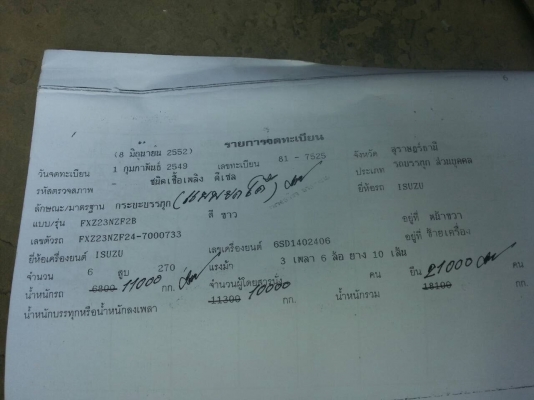 รายการจดทะเบียน
(8 มิถุนายน 2552)
วันจดทะเบียน 1 กุมภาพันธ์ 2549 เลขทะเบียน 81 - 7525 จังหวัด สุราษฎร์ธานี
รหัสตรวจสภาพ - ชนิดเชื้อเพลิง ดีเซล ประเภท รถบรรทุก ส่วนบุคคล
ลักษณะ/มาตรฐาน กระบะบรรทุก ยี่ห้อรถ ISUZU
แบบ/รุ่น FXZ23NZF2B สี ขาว
เลขตัวรถ FXZ23NZF24-7000733 อยู่ที่ หน้าขวา
ยี่ห้อเครื่องยนต์ ISUZU เลขเครื่องยนต์ 6SD1402406 อยู่ที่ ซ้ายเครื่อง
จำนวน 6 สูบ 270 แรงม้า 3 เพลา 6 ล้อ ยาง 10 เส้น
น้ำหนักรถ 6800 11000 กก. จำนวนผู้โดยสารนั่ง คน ยืน คน
น้ำหนักบรรทุกหรือน้ำหนักลงเพลา 11300 10000 กก. น้ำหนักรวม 18100 21000 กก.